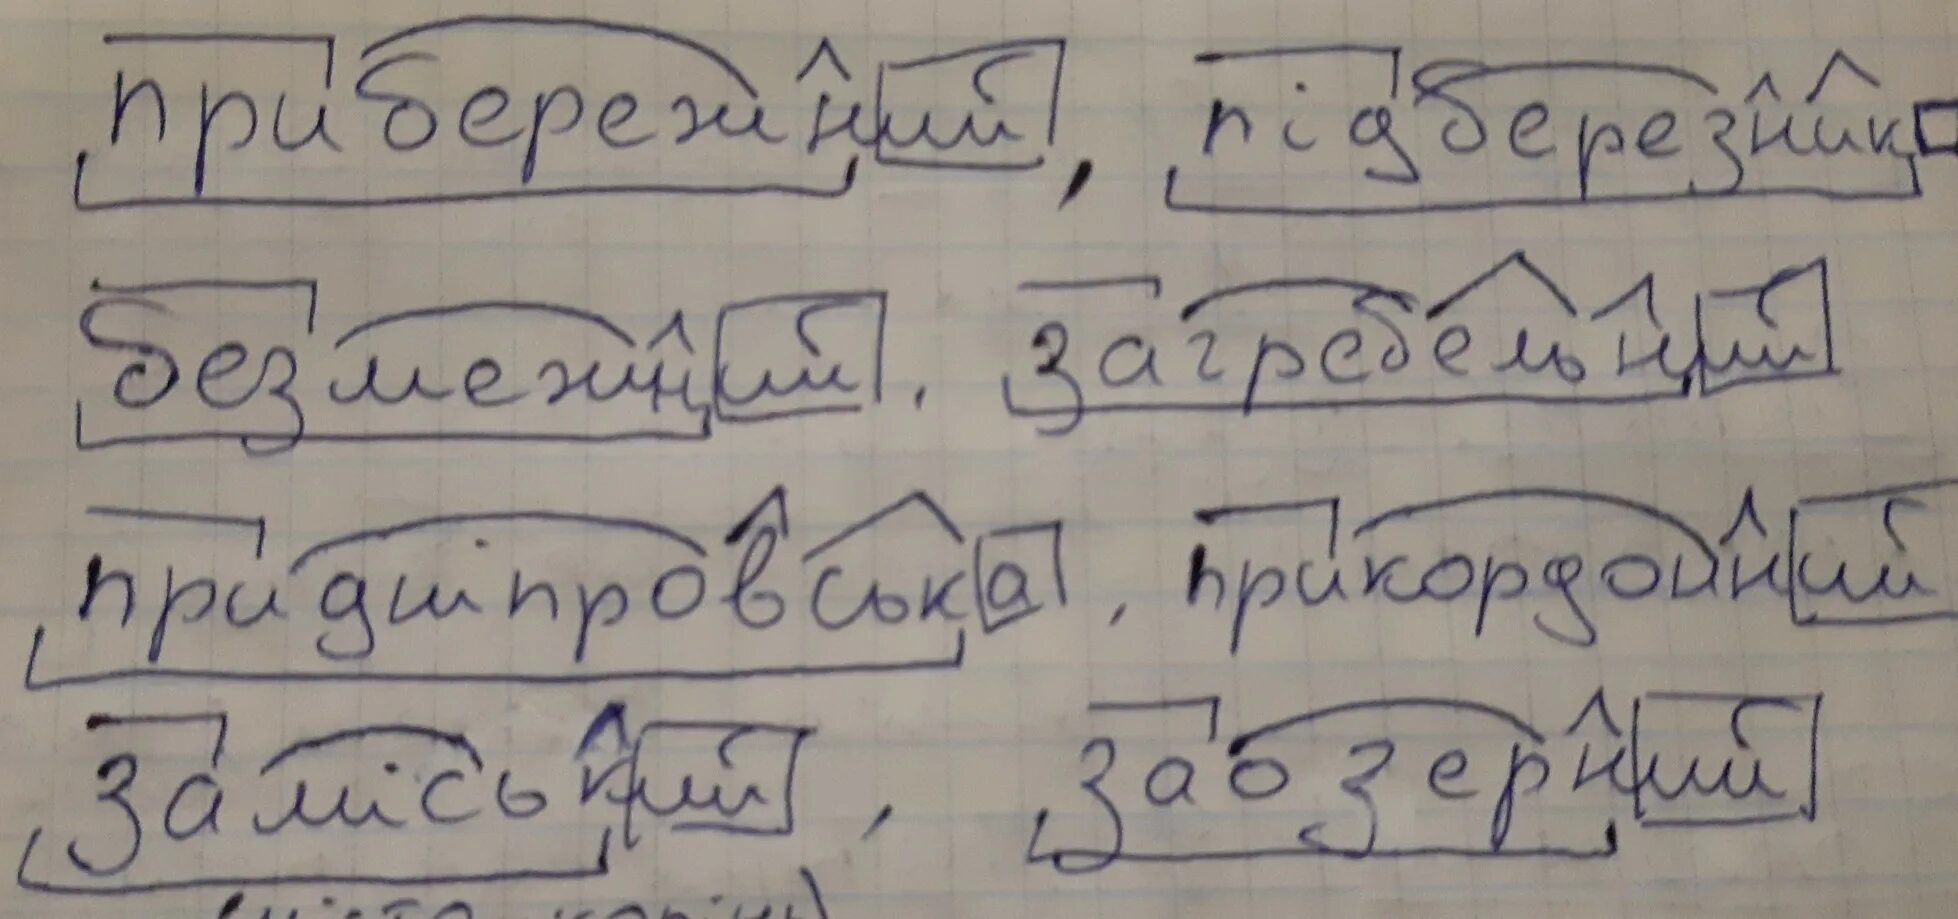 прибережний, підберезник
безмежний, загребельний
придніпровська, прикордонний
заміський, заозерний